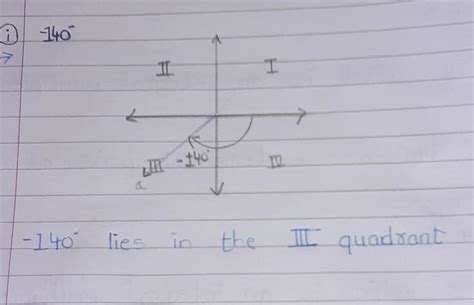 (i) -140°
II I
III -140° IV
-140° lies in the III quadrant